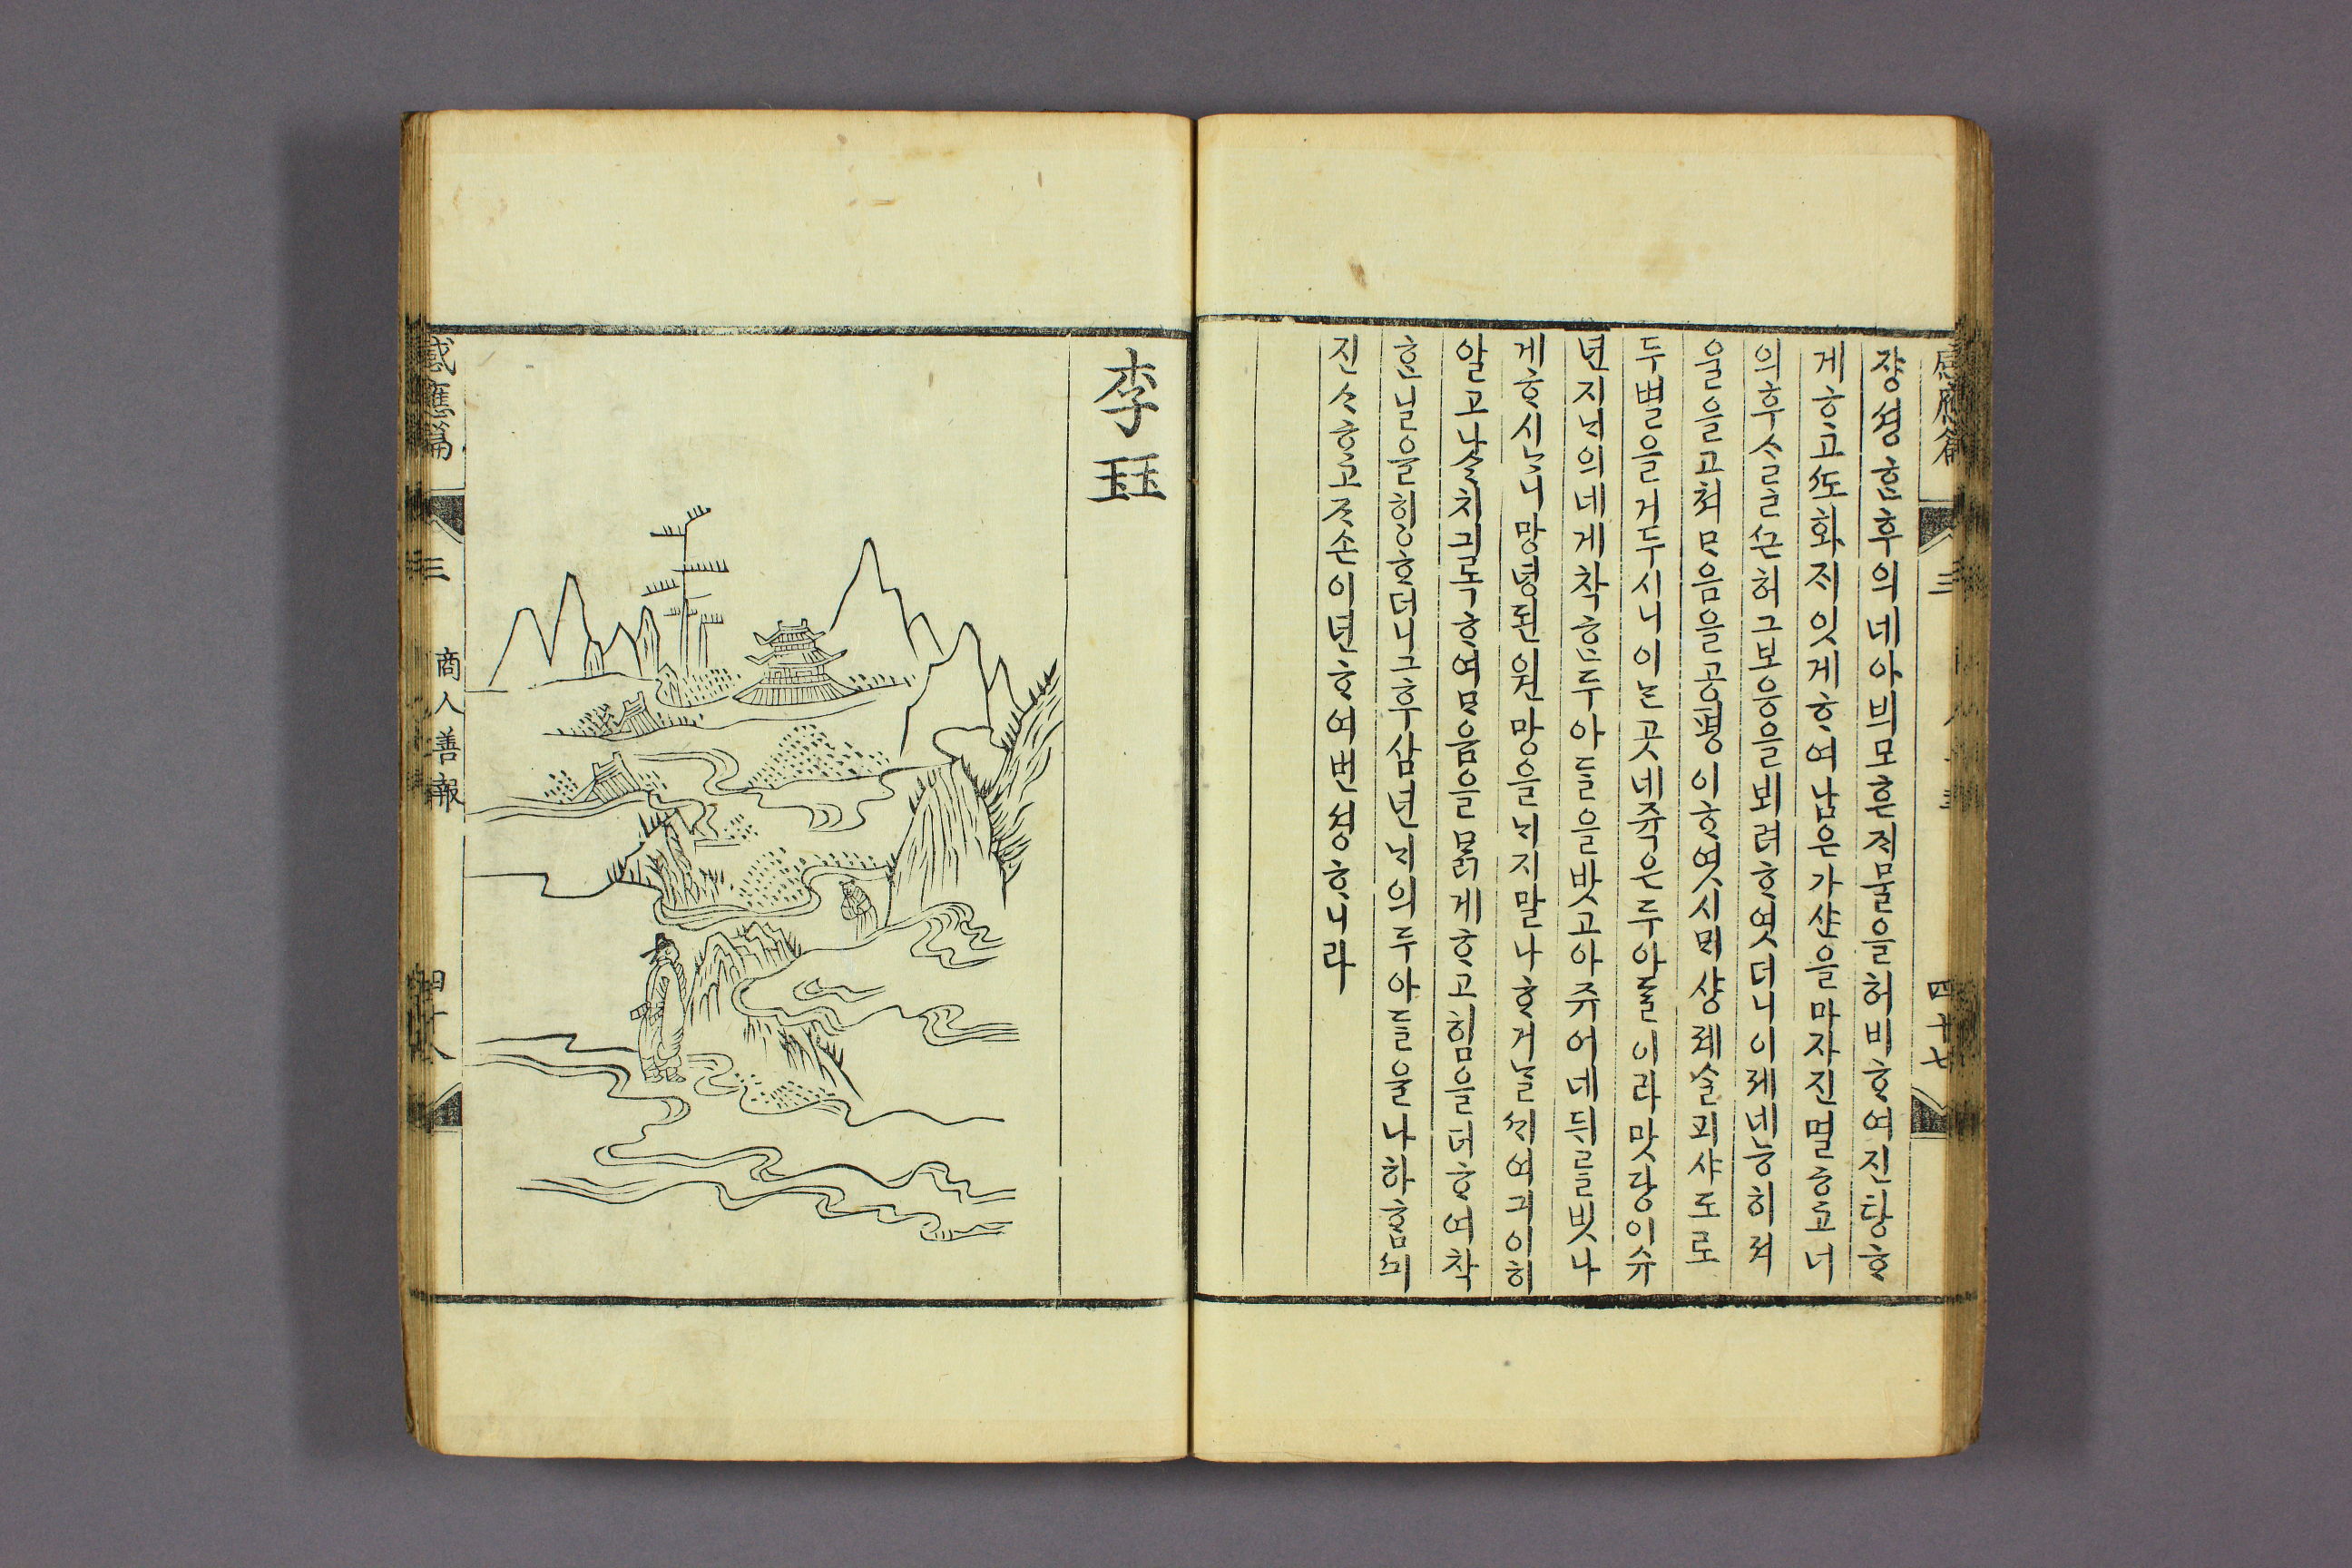 感應篇 三 四十七
쟝셩ᄒᆞᆫ후의네아븨모흔ᄌᆡ물을허비ᄒᆞ여진탕ᄒᆞ
게ᄒᆞ고ᄯᅩ화ᄌᆡ잇게ᄒᆞ여남은가샨을마자진멸ᄒᆞ고너
의후ᄉᆞᄅᆞᆯᄭᅳᆫ허그보응을뵈려ᄒᆞ엿더니이졔네능히져
울을고쳐ᄆᆞ음을공평이ᄒᆞ엿시ᄆᆡ샹졔ᄉᆞᆯ피샤도로
두별을거두시니이ᄂᆞᆫ곳네쥭은두아ᄃᆞᆯ이라맛당이슈
년지ᄂᆡ의네게착ᄒᆞᆫ두아ᄃᆞᆯ을밧고아쥬어네뒤를빗나
게ᄒᆞ시ᄂᆞ니망녕된원망을ᄂᆡ지말나ᄒᆞ거ᄂᆞᆯᄭᆡ여긔이히
알고나ᄉᆞᆯ치긔록ᄒᆞ여ᄆᆞ음을ᄆᆞᆰ게ᄒᆞ고힘을더ᄒᆞ여착
ᄒᆞᆫ닐을ᄒᆡᆼᄒᆞ더니그후삼년ᄂᆡ의두아ᄃᆞᆯ을나하ᄒᆞᆷᄭᅴ
진ᄉᆞᄒᆞ고ᄌᆞ손이년ᄒᆞ여번셩ᄒᆞ니라
李珏
感應篇 三 商人善報 四十八